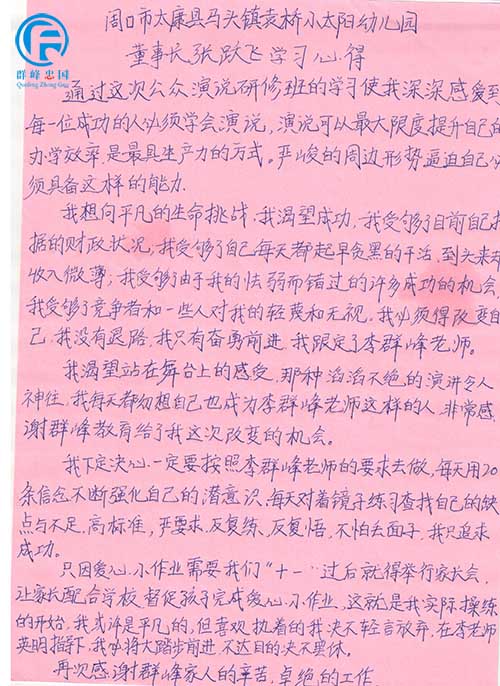 群峰忠国
Qunfeng Zhong Guo
周口市太康县马头镇袁桥小太阳幼儿园
董事长张跃飞学习心得
通过这次公众演说研修班的学习使我深深感爱到
每一位成功的人必须学会演说，演说可以最大限度提升自己的
办学效率是最具生产力的方式。严峻的周边形势逼迫自己必
须具备这样的能力.
我想向平凡的生命挑战.我渴望成功，我受够了目前自己拮
据的财政状况，我受够了自己每天都起早贪黑的干活，到头来却
收入微薄，我受够了由于我的怯弱而错过的许多成功的机会，
我受够了竞争者和一些人对我的轻蔑和无视，我必须得改变自
己，我没有退路，我只有奋勇前进，我跟定了李群峰老师。
我渴望站在舞台上的感受，那种滔滔不绝的演讲令人
神往，我每天都幻想自己也成为李群峰老师这样的人，非常感
谢群峰教育给了我这次改变的机会。
我下定决心一定要按照李群峰老师的要求去做，每天用20
条信念不断强化自己的潜意识，每天对着镜子练习查找自己的缺
点与不足，高标准，严要求，反复练、反复悟，不怕丢面子，我只追求
成功。
只因爱心小作业需要我们“十一”过后就得举行家长会，
让家长配合学校督促孩子完成爱心小作业，这就是我实际操练
的开始，我或许是平凡的，但喜欢执着的我决不轻言放弃，在李老师
英明指挥下，我必将大踏步前进，不达目的决不罢休。
再次感谢群峰家人的辛苦，卓绝的工作.